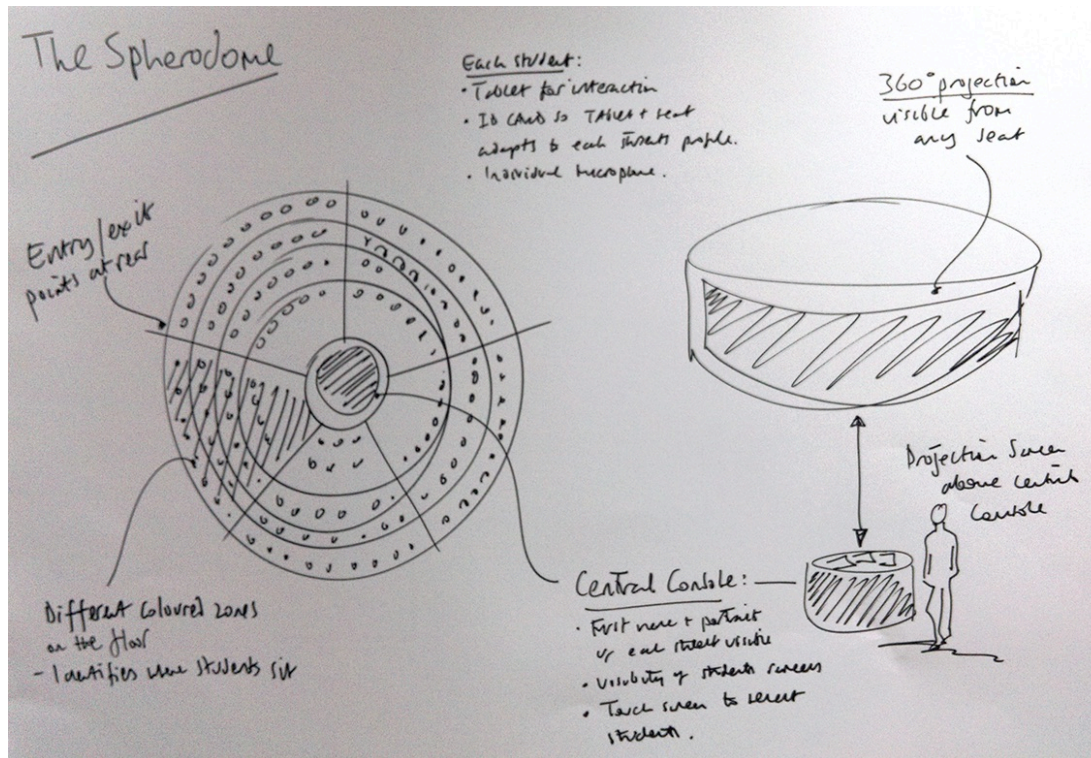 The Spherodome
Each student:
• Tablet for interaction
• ID CARD so TABLET + seat
adapts to each students profile.
• Individual microphone.
360° projection
visible from
any seat
Entry/exit
points at rear
Projection Screen
above central
console
Different coloured zones
on the floor
- Identifies where students sit
Central Console:
• First name + portrait
of each student visible
• Visibility of students screens
• Touch screen to select
students.